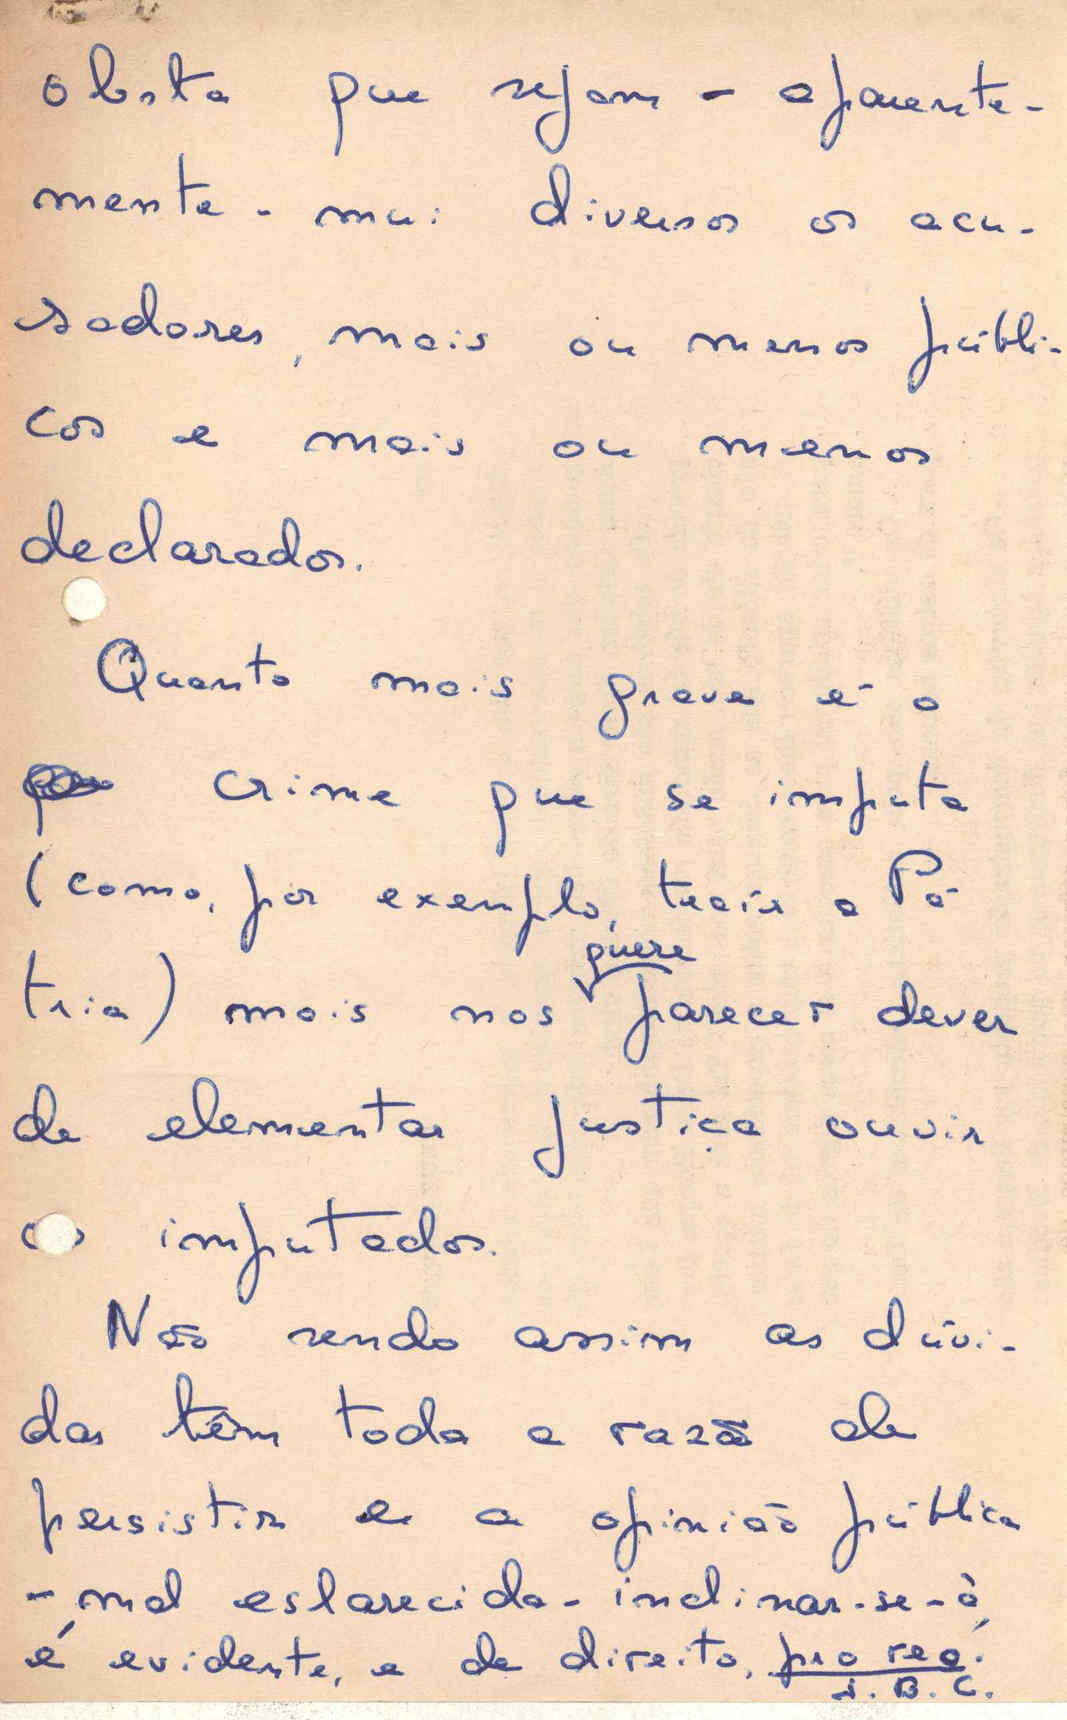 obsta que sejam - aparente-
mente - mui diversos os acu-
sadores, mais ou menos públi-
cos e mais ou menos
declarados.
Quanto mais grave é o
crime que se imputa
(como, por exemplo, trair a Pá-
tria) mais nos
quere
parecer dever
de elementar justiça ouvir
os imputados.
Não sendo assim as dúvi-
das têm toda a razão de
persistir e a opinião pública
- mal esclarecida - inclinar-se-à
é evidente, e de direito, pro reo.
J. B. C.